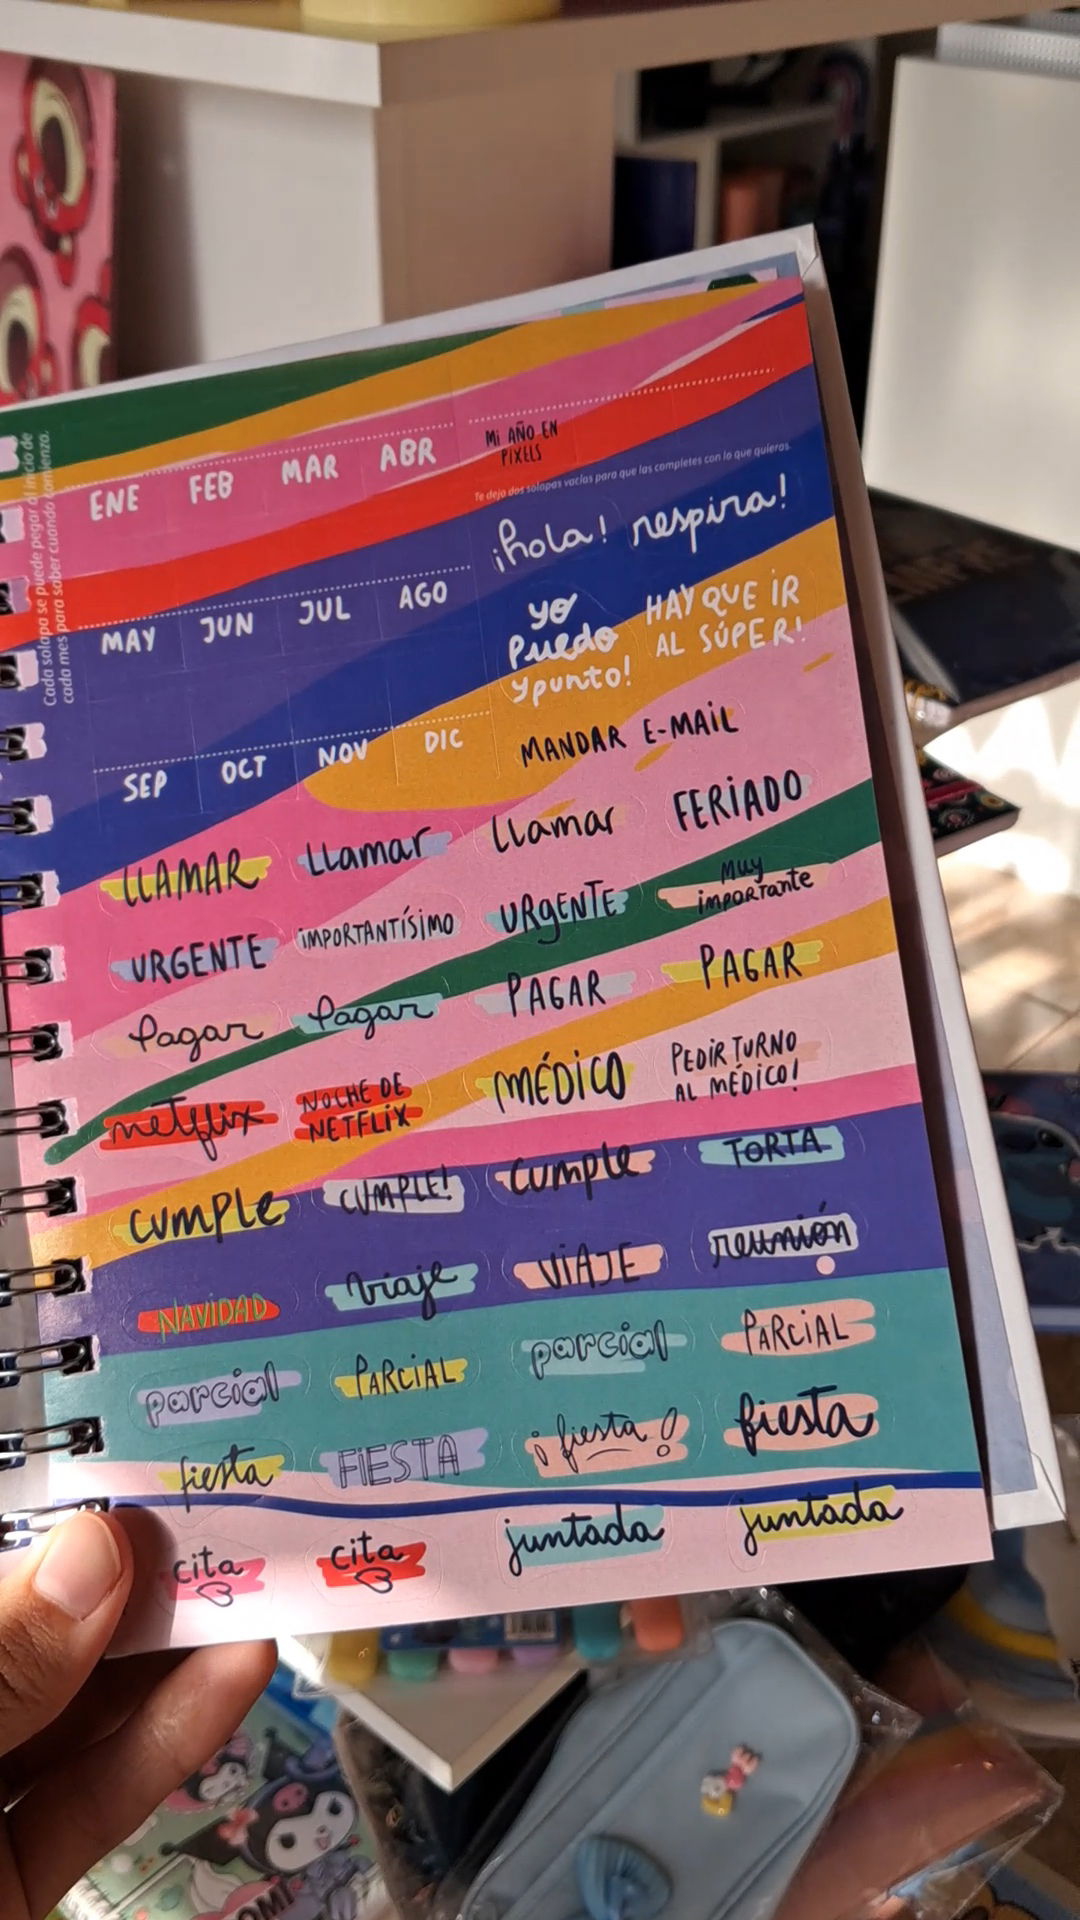 Cada solapa se puede pegar al inicio de
cada mes para saber cuando comienza.
ENE FEB MAR ABR
Mi AÑO EN
PIXELS
Te dejo dos solapas vacías para que las completes con lo que quieras.
MAY JUN JUL AGO
¡hola! respira!
yo
Puedo
y punto!
HAY QUE iR
AL SÚPER!
SEP OCT NOV DIC
MANDAR E-MAiL
LLAMAR Llamar Llamar FERiADO
URGENTE iMPORTANTÍSIMO URgENTE Muy
importante
Pagar Pagar PAGAR PAGAR
netflix NOCHE DE
NETFLiX
MÉDiCO PEDiR TURNO
AL MÉDiCO!
CUMPLE CUMPLE! cumple TORTA
NAViDAD Viaje ViAJE reunión
parcial PARCiAL parcial PARCiAL
fiesta FiESTA ¡fiesta! fiesta
cita cita juntada juntada